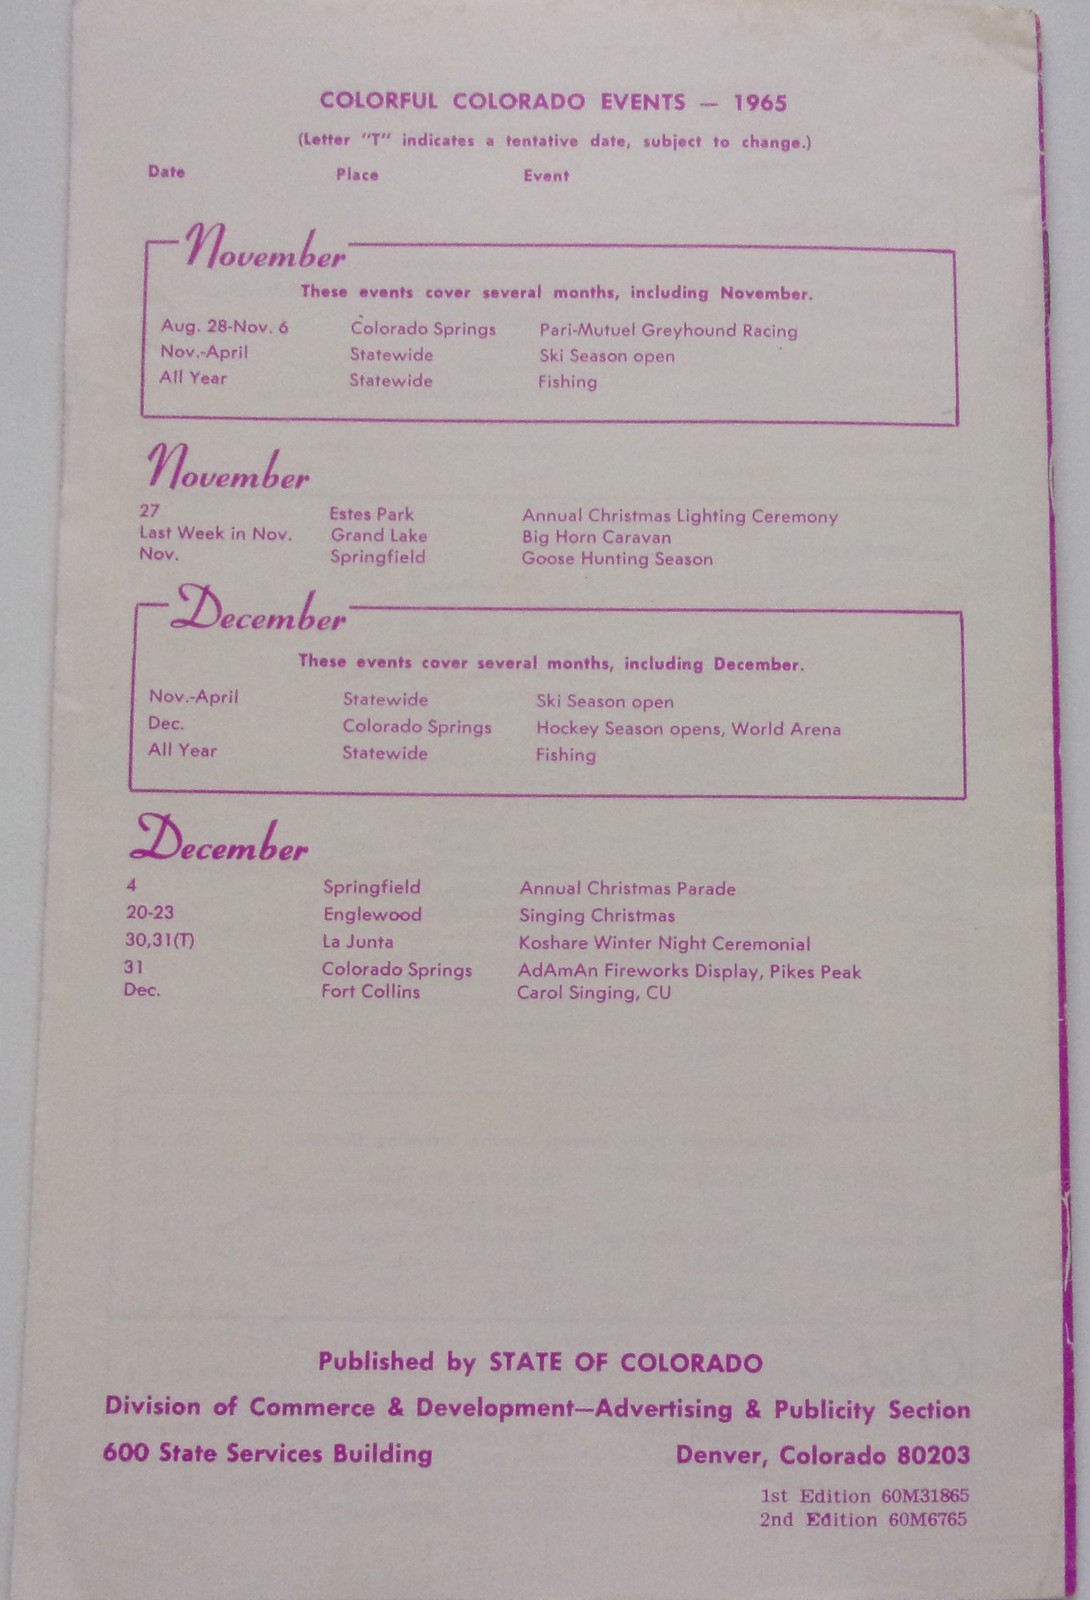 COLORFUL COLORADO EVENTS — 1965
(Letter "T" indicates a tentative date, subject to change.)
Date Place Event
November
These events cover several months, including November.
Aug. 28-Nov. 6 Colorado Springs Pari-Mutuel Greyhound Racing
Nov.-April Statewide Ski Season open
All Year Statewide Fishing
November
27 Estes Park Annual Christmas Lighting Ceremony
Last Week in Nov. Grand Lake Big Horn Caravan
Nov. Springfield Goose Hunting Season
December
These events cover several months, including December.
Nov.-April Statewide Ski Season open
Dec. Colorado Springs Hockey Season opens, World Arena
All Year Statewide Fishing
December
4 Springfield Annual Christmas Parade
20-23 Englewood Singing Christmas
30,31(T) La Junta Koshare Winter Night Ceremonial
31 Colorado Springs AdAmAn Fireworks Display, Pikes Peak
Dec. Fort Collins Carol Singing, CU
Published by STATE OF COLORADO
Division of Commerce & Development—Advertising & Publicity Section
600 State Services Building Denver, Colorado 80203
1st Edition 60M31865
2nd Edition 60M6765